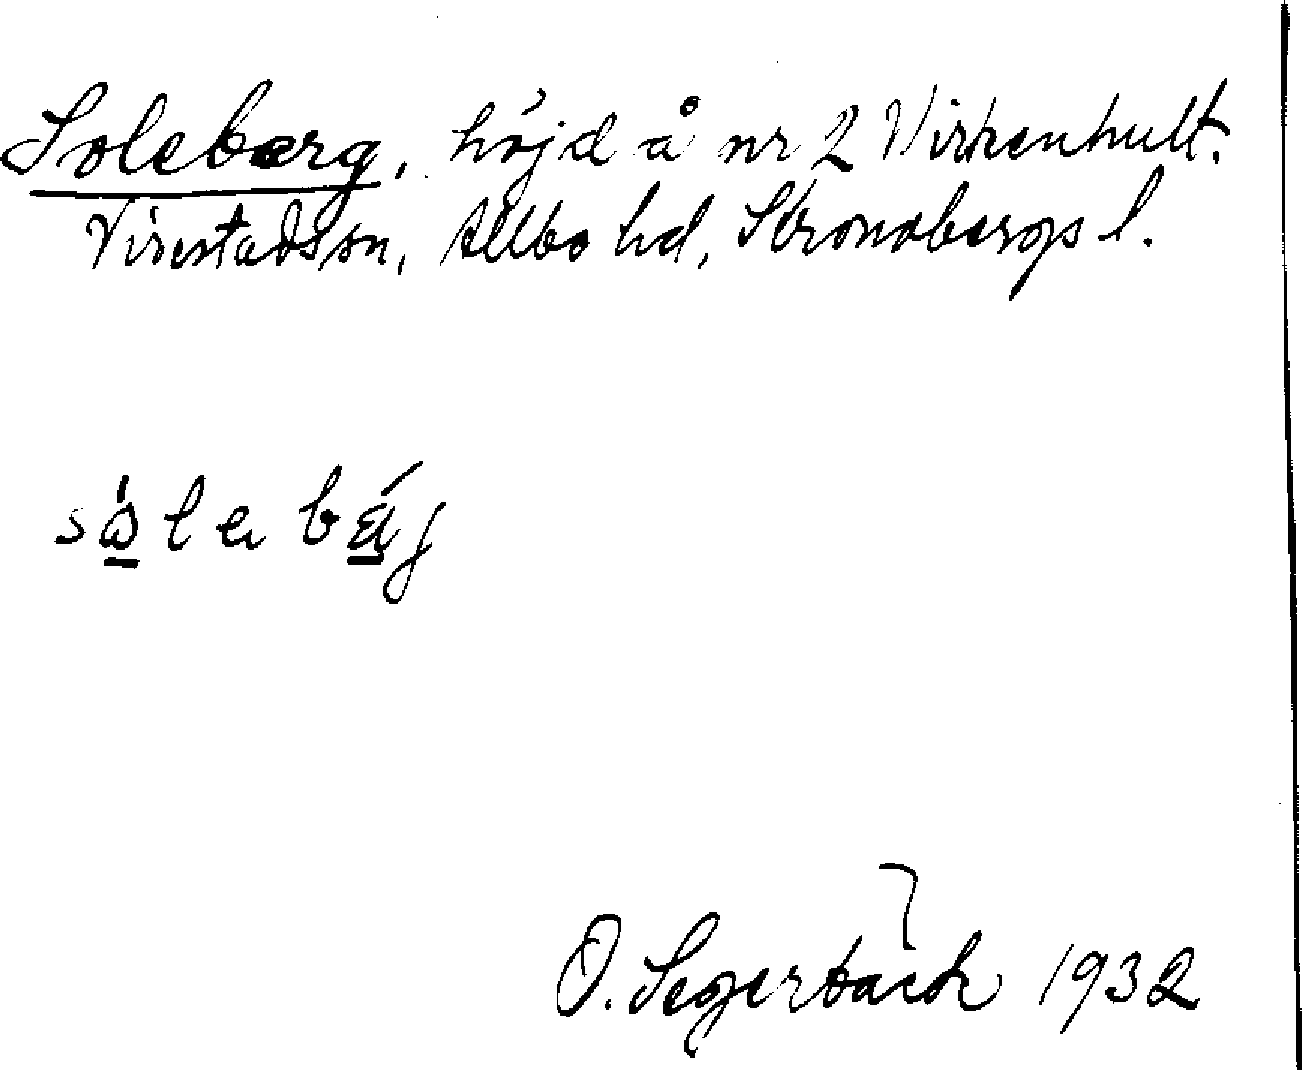 Soleberg, höjd å nr 2 Virkenhult.
Virestads sn, Allbo hd, Kronobergs l.
O. Segerbäck 1932